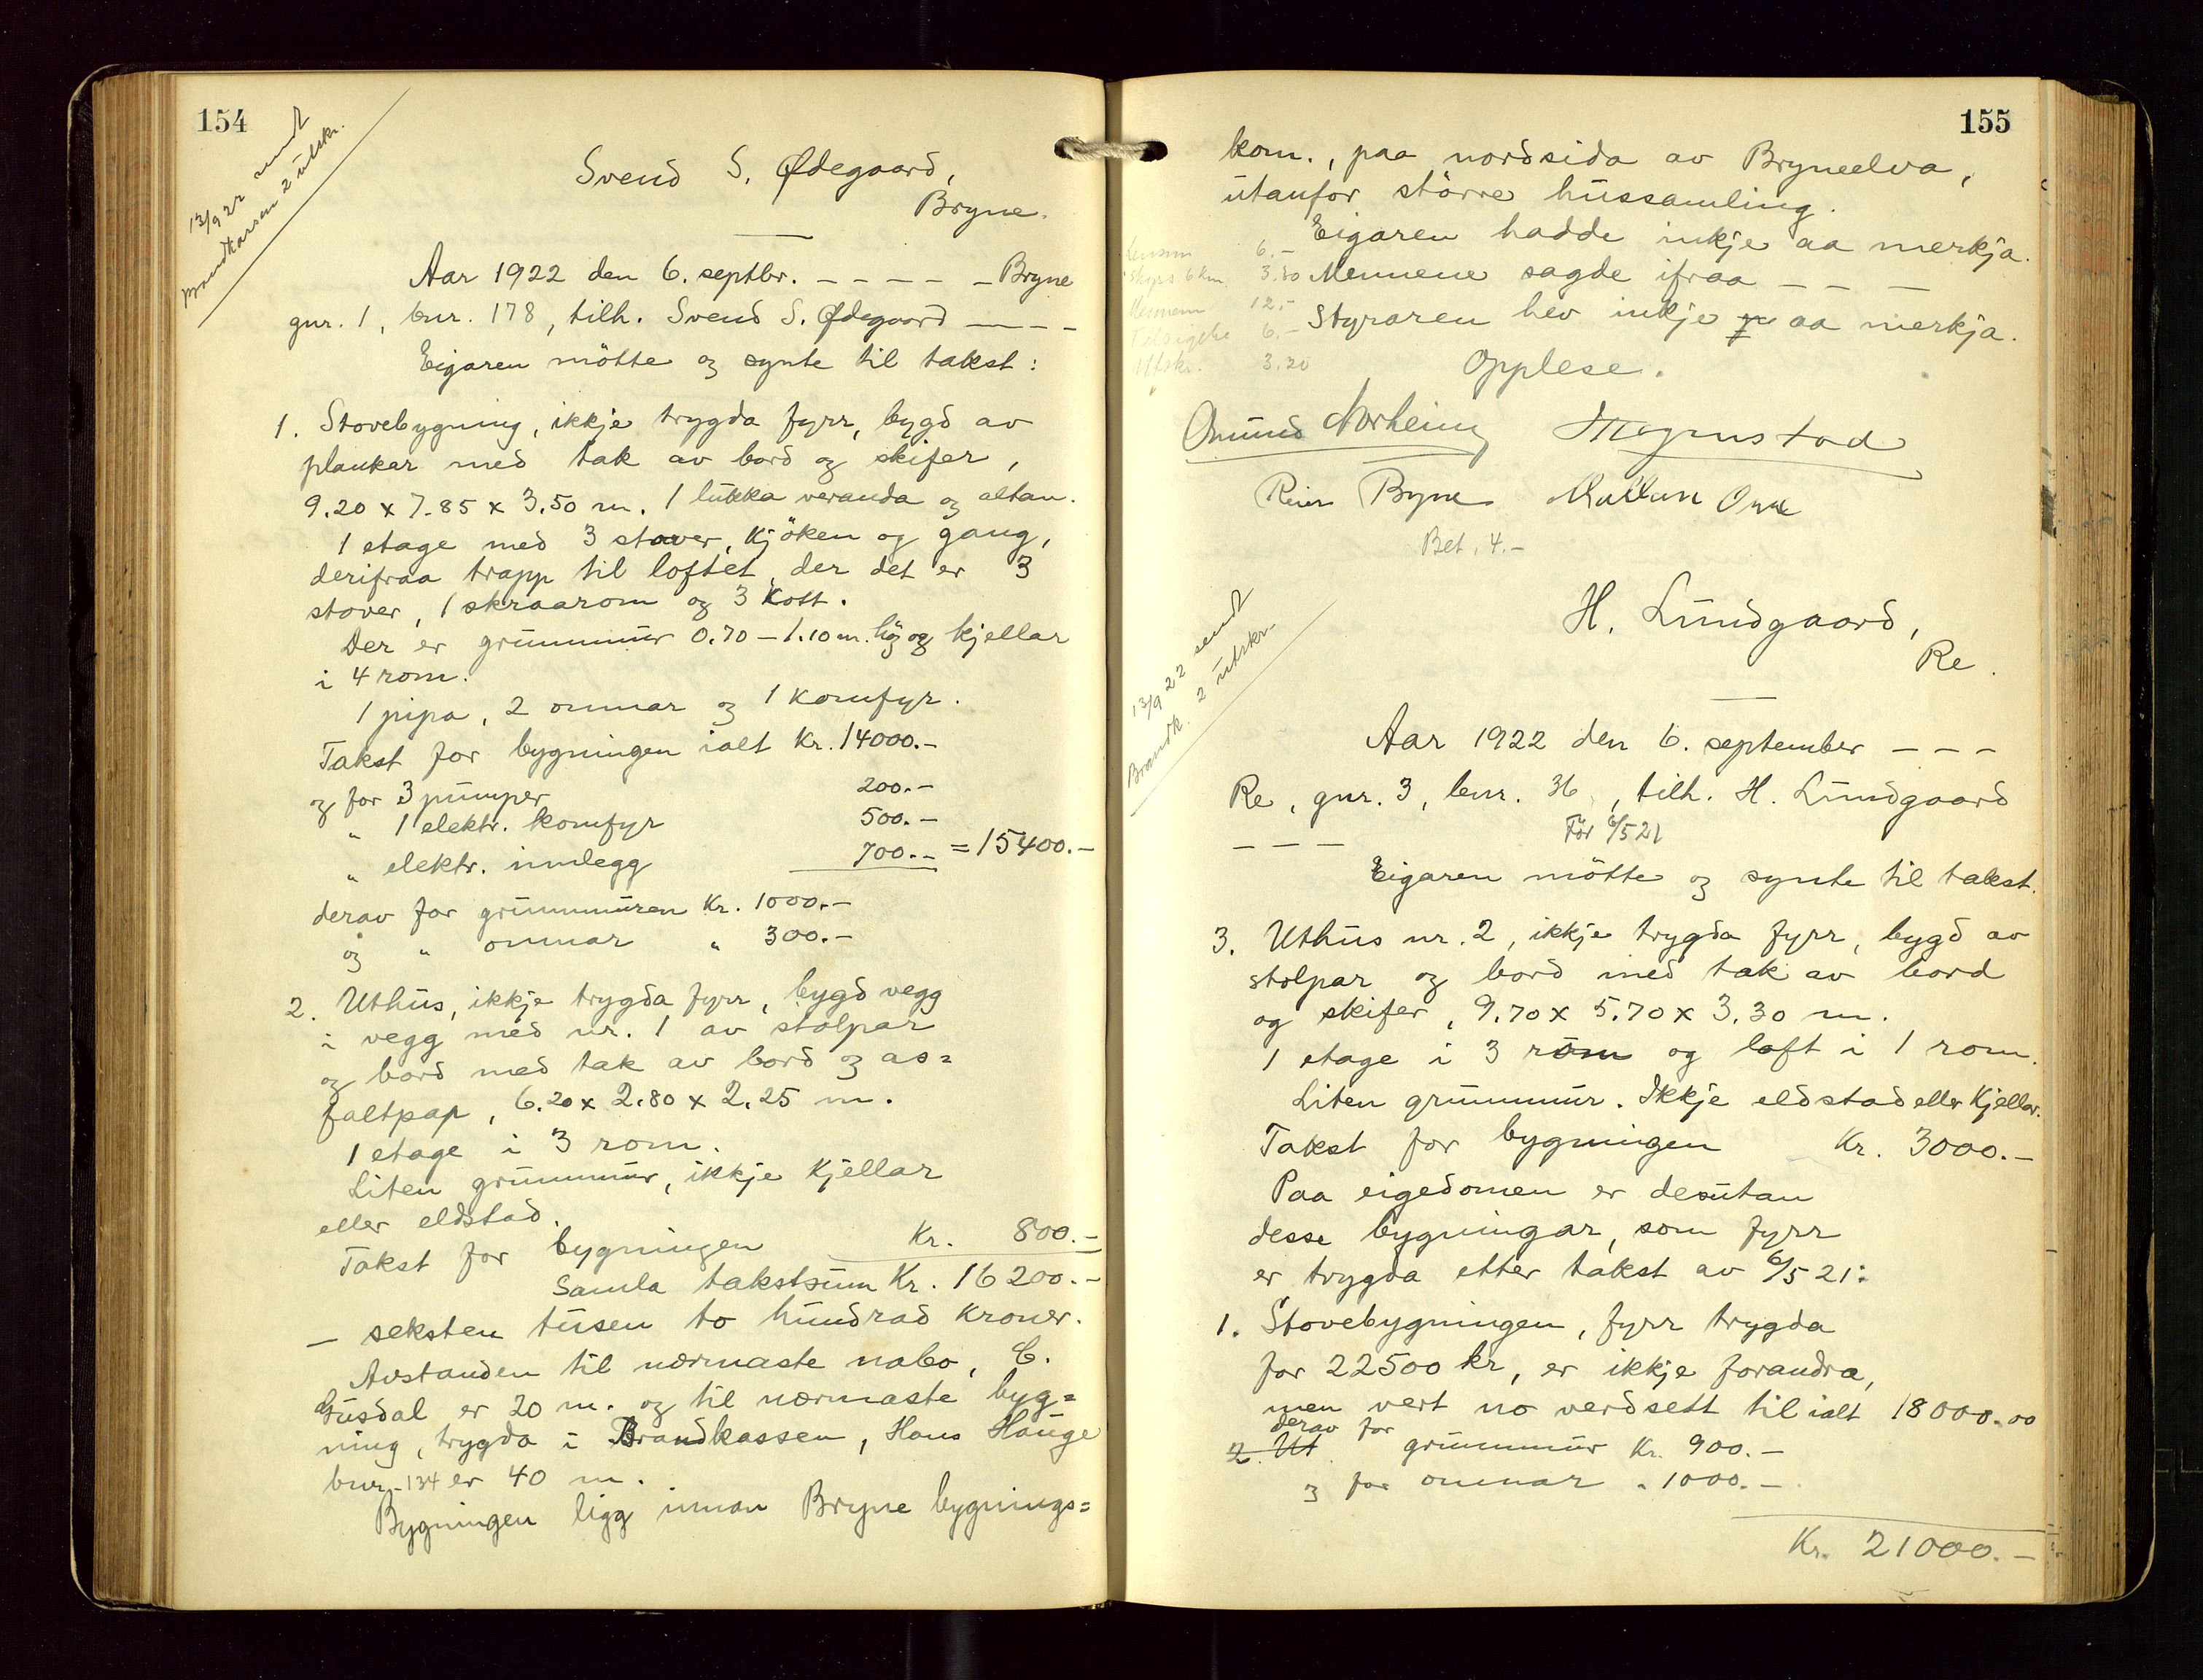 154
13/9 22 sendt
Brandkassen 2 utskr.
Svend S. Ødegaard,
Bryne.
Aar 1922 den 6. septbr. – – – – – Bryne
gnr. 1, bnr. 178, tilh. Svend S. Ødegaard – – –
Eigaren mötte og synte til takst:
1. Stovebygning, ikkje trygda fyrr, bygd av
plankar med tak av bord og skifer,
9.20 x 7.85 x 3.50 m. 1 lukka veranda og altan.
1 etage med 3 stover, kjöken og gang,
derifraa trapp til loftet, der det er 3
stover, 1 skraarom og 3 kott.
Der er grunnmur 0.70 – 1.10 m. hög og kjellar
i 4 rom.
1 pipa, 2 omnar og 1 komfyr.
Takst for bygningen ialt Kr. 14000.–
og for 3 pumper 200.–
" 1 elektr. komfyr 500.–
" elektr. innlegg 700.– = 15400.–
derav for grunnmuren Kr. 1000.–
og " omnar " 300.–
2. Uthus, ikkje trygda fyrr, bygd vegg
i vegg med nr. 1 av stolpar
og bord med tak av bord og as=
faltpap, 6.20 x 2.80 x 2.25 m.
1 etage i 3 rom.
Liten grunnmur, ikkje kjellar
eller eldstad.
Takst for bygningen Kr. 800.–
Samla takstsum Kr. 16200.–
– seksten tusen to hundrad kroner.
Avstanden til nærmaste nabo, C.
Gusdal er 20 m. og til nærmaste byg=
ning, trygda i Brandkassen, Hans Hauge
bnr. 134 er 40 m.
Bygningen ligg innan Bryne bygnings=
155
kom., paa nordsida av Bryneelva,
utanfor större hussamling.
Eigaren hadde inkje aa merkja.
Mennene sagde ifraa – – –
Styraren hev inkje aa merkja.
6.–
Skyss 6 km 3.30
Mennene 12.–
6.–
Utskr. 3.20
Opplese.
Omund Norheim Magnus Tad
Reier Bryne
Bet. 4.–
13/9 22 sendt
Brandk. 2 utskr.
H. Lundgaard,
Re.
Aar 1922 den 6. september – – –
Re, gnr. 3, bnr. 36, tilh. H. Lundgaard
– – – För 6/5 21
Eigaren mötte og synte til takst.
3. Uthus nr. 2, ikkje trygda fyrr, bygd av
stolpar og bord med tak av bord
og skifer, 9.70 x 5.70 x 3.30 m.
1 etage i 3 rom og loft i 1 rom.
Liten grunnmur. Ikkje eldstad eller kjellar.
Takst for bygningen Kr. 3000.–
Paa eigedomen er desutan
desse bygningar, som fyrr
er trygda etter takst av 6/5 21:
1. Stovebygningen, fyrr trygda
for 22500 kr, er ikkje forandra,
men vert no verdsett til ialt 18000.00
2. Ut derav for grunnmur Kr. 900.–
og for omnar " 1000.–
Kr. 21000.–